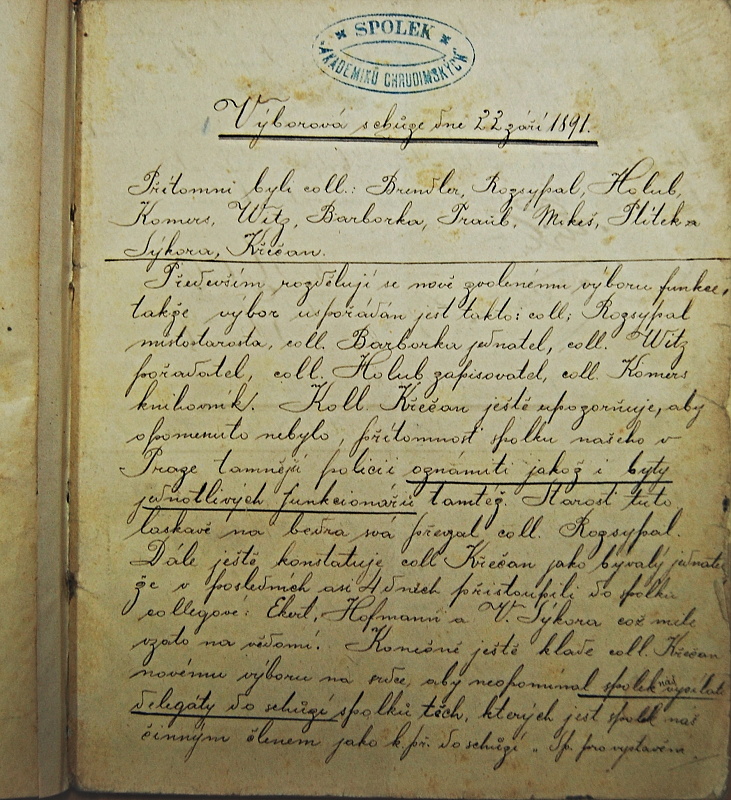 SPOLEK
AKADEMIKŮ CHRUDIMSKÝCH
Výborová schůze dne 22 září 1891.
Přítomni byli coll.: Brendler, Rozsypal, Holub,
Komers, Witz, Barborka, Traub, Mikeš, Plítek a
Sýkora, Křečan.
Především rozdělují se nově zvolenému výboru funkce,
takže výbor uspořádán jest takto: coll; Rozsypal
místostarosta, coll. Barborka jednatel, coll. Witz
pořadatel, coll. Holub zapisovatel, coll. Komers
knihovník. Koll. Křečan ještě upozorňuje, aby
opomenuto nebylo, přítomnost spolku našeho v
Praze tamnější policii oznámiti jakož i byty
jednotlivých funkcionářů tamtéž. Starost tuto
laskavě na bedra svá převzal coll. Rozsypal.
Dále ještě konstatuje coll Křečan jako bývalý jednatel
že v posledních asi 4 dnech přistoupili do spolku
collegové: Ekert, Hofmann a V. Sýkora což mile
vzato na vědomí. Konečně ještě klade coll. Křečan
novému výboru na srdce, aby neopominal spolek náš vysílati
delegáty do schůzí spolků těch, kterých jest spolek náš
činným členem jako k. př. do schůzí „Sp. pro vystavění